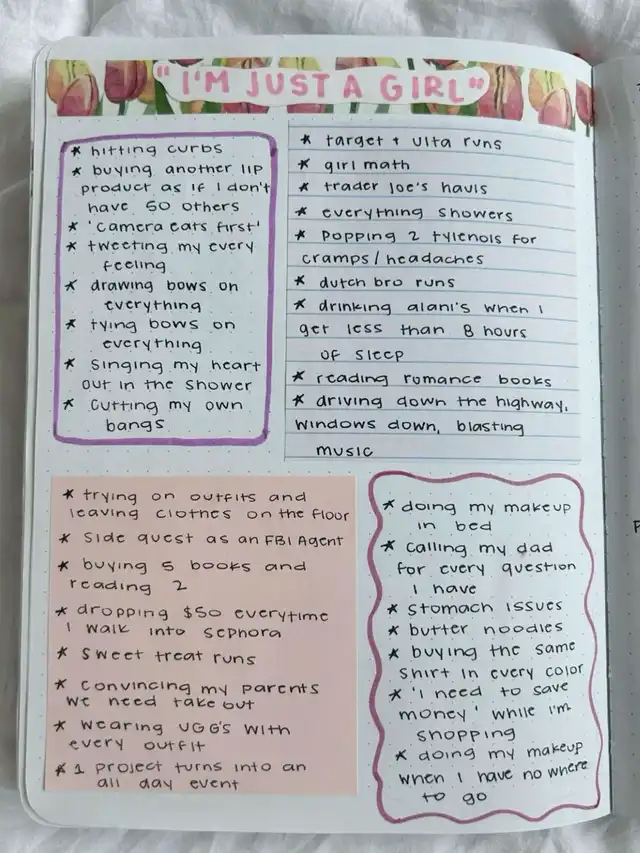 "I'M JUST A GIRL"
* hitting curbs
* buying another lip
product as if I don't
have 50 others
* 'camera eats first'
* tweeting my every
feeling
* drawing bows on
everything
* tying bows on
everything
* singing my heart
out in the shower
* cutting my own
bangs
* target + ulta runs
* girl math
* trader joe's hauls
* everything showers
* popping 2 tylenols for
cramps/headaches
* dutch bro runs
* drinking alani's when I
get less than 8 hours
of sleep
* reading romance books
* driving down the highway,
windows down, blasting
music
* trying on outfits and
leaving clothes on the floor
* side quest as an FBI Agent
* buying 5 books and
reading 2
* dropping $50 everytime
I walk into sephora
* sweet treat runs
* convincing my parents
we need take out
* wearing UGG'S with
every outfit
* 1 project turns into an
all day event
* doing my makeup
in bed
* calling my dad
for every question
I have
* stomach issues
* butter noodles
* buying the same
shirt in every color
* 'I need to save
money' while I'm
shopping
* doing my makeup
when I have no where
to go